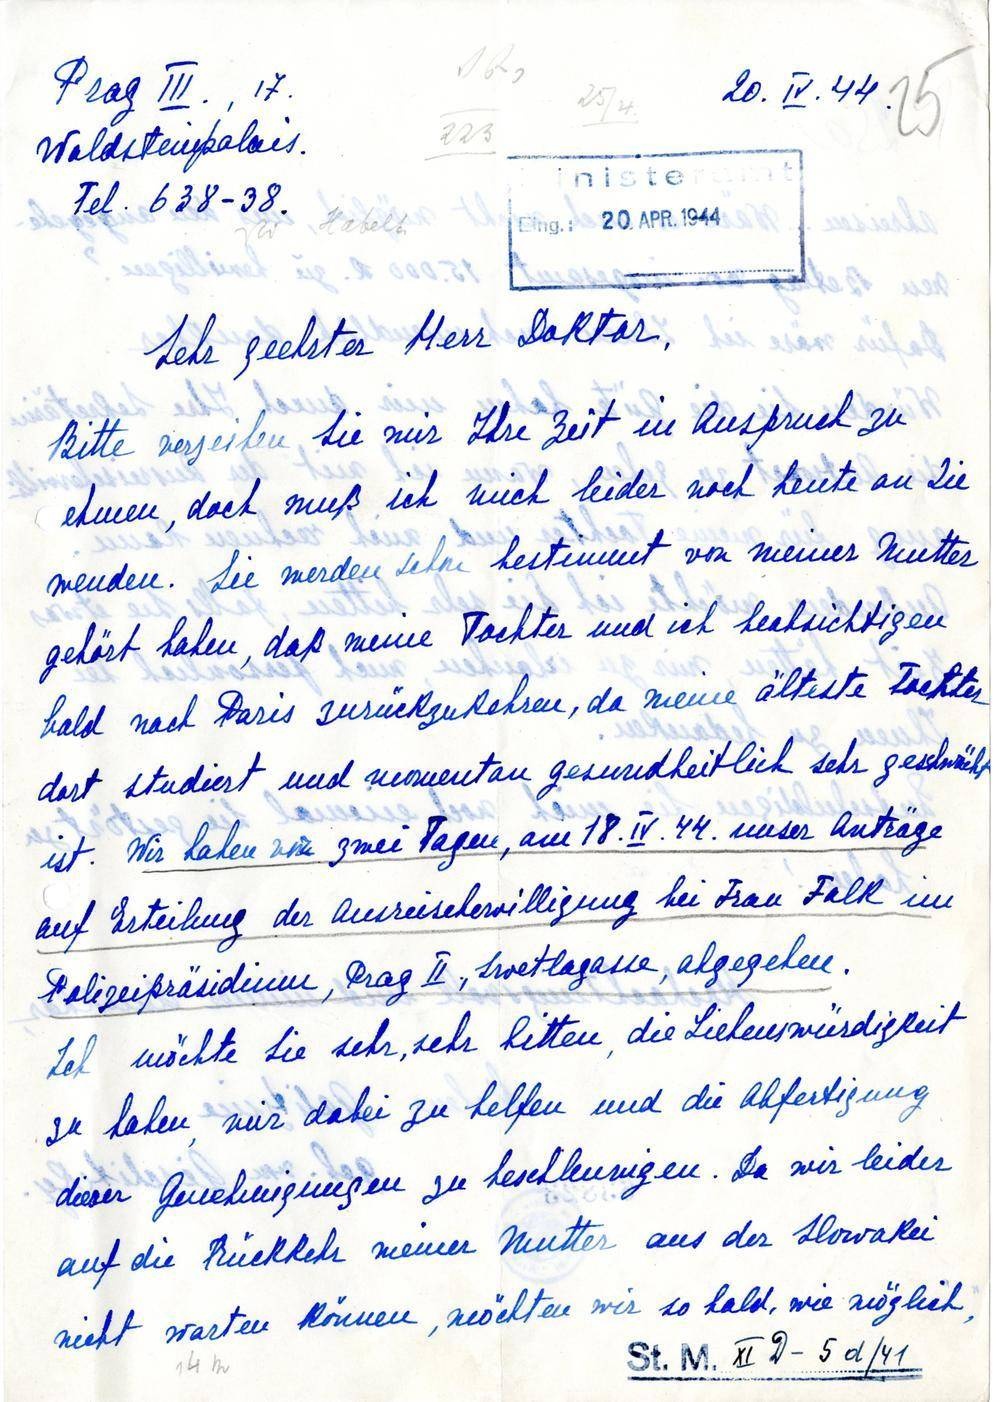 Prag III., 17.
20. IV. 44.
25
Waldsteinpalais.
223
25/4.
Tel. 638-38.
Ministeramt
Eing.: 20. APR. 1944
Sehr geehrter Herr Doktor,
Bitte verzeihen Sie mir Ihre Zeit in Anspruch zu
ehmen, doch muß ich mich leider noch heute an Sie
wenden. Sie werden schon bestimmt von meiner Mutter
gehört haben, daß meine Tochter und ich beabsichtigen
bald nach Paris zurückzukehren, da meine älteste Tochter
dort studiert und momentan gesundheitlich sehr geschwächt
ist. Wir haben vor zwei Tagen, am 18. IV. 44. unser Anträge
auf Erteilung der Ausreisebewilligung bei Frau Falk im
Polizeipräsidium, Prag II., Swetlagasse, abgegeben.
Ich möchte Sie sehr, sehr bitten, die Liebenswürdigkeit
zu haben, mir dabei zu helfen und die Abfertigung
dieser Genehmigungen zu beschleunigen. Da wir leider
auf die Rückkehr meiner Mutter aus der Slowakei
nicht warten können, möchten wir so bald, wie möglich,
St. M. XI D - 5 d/41